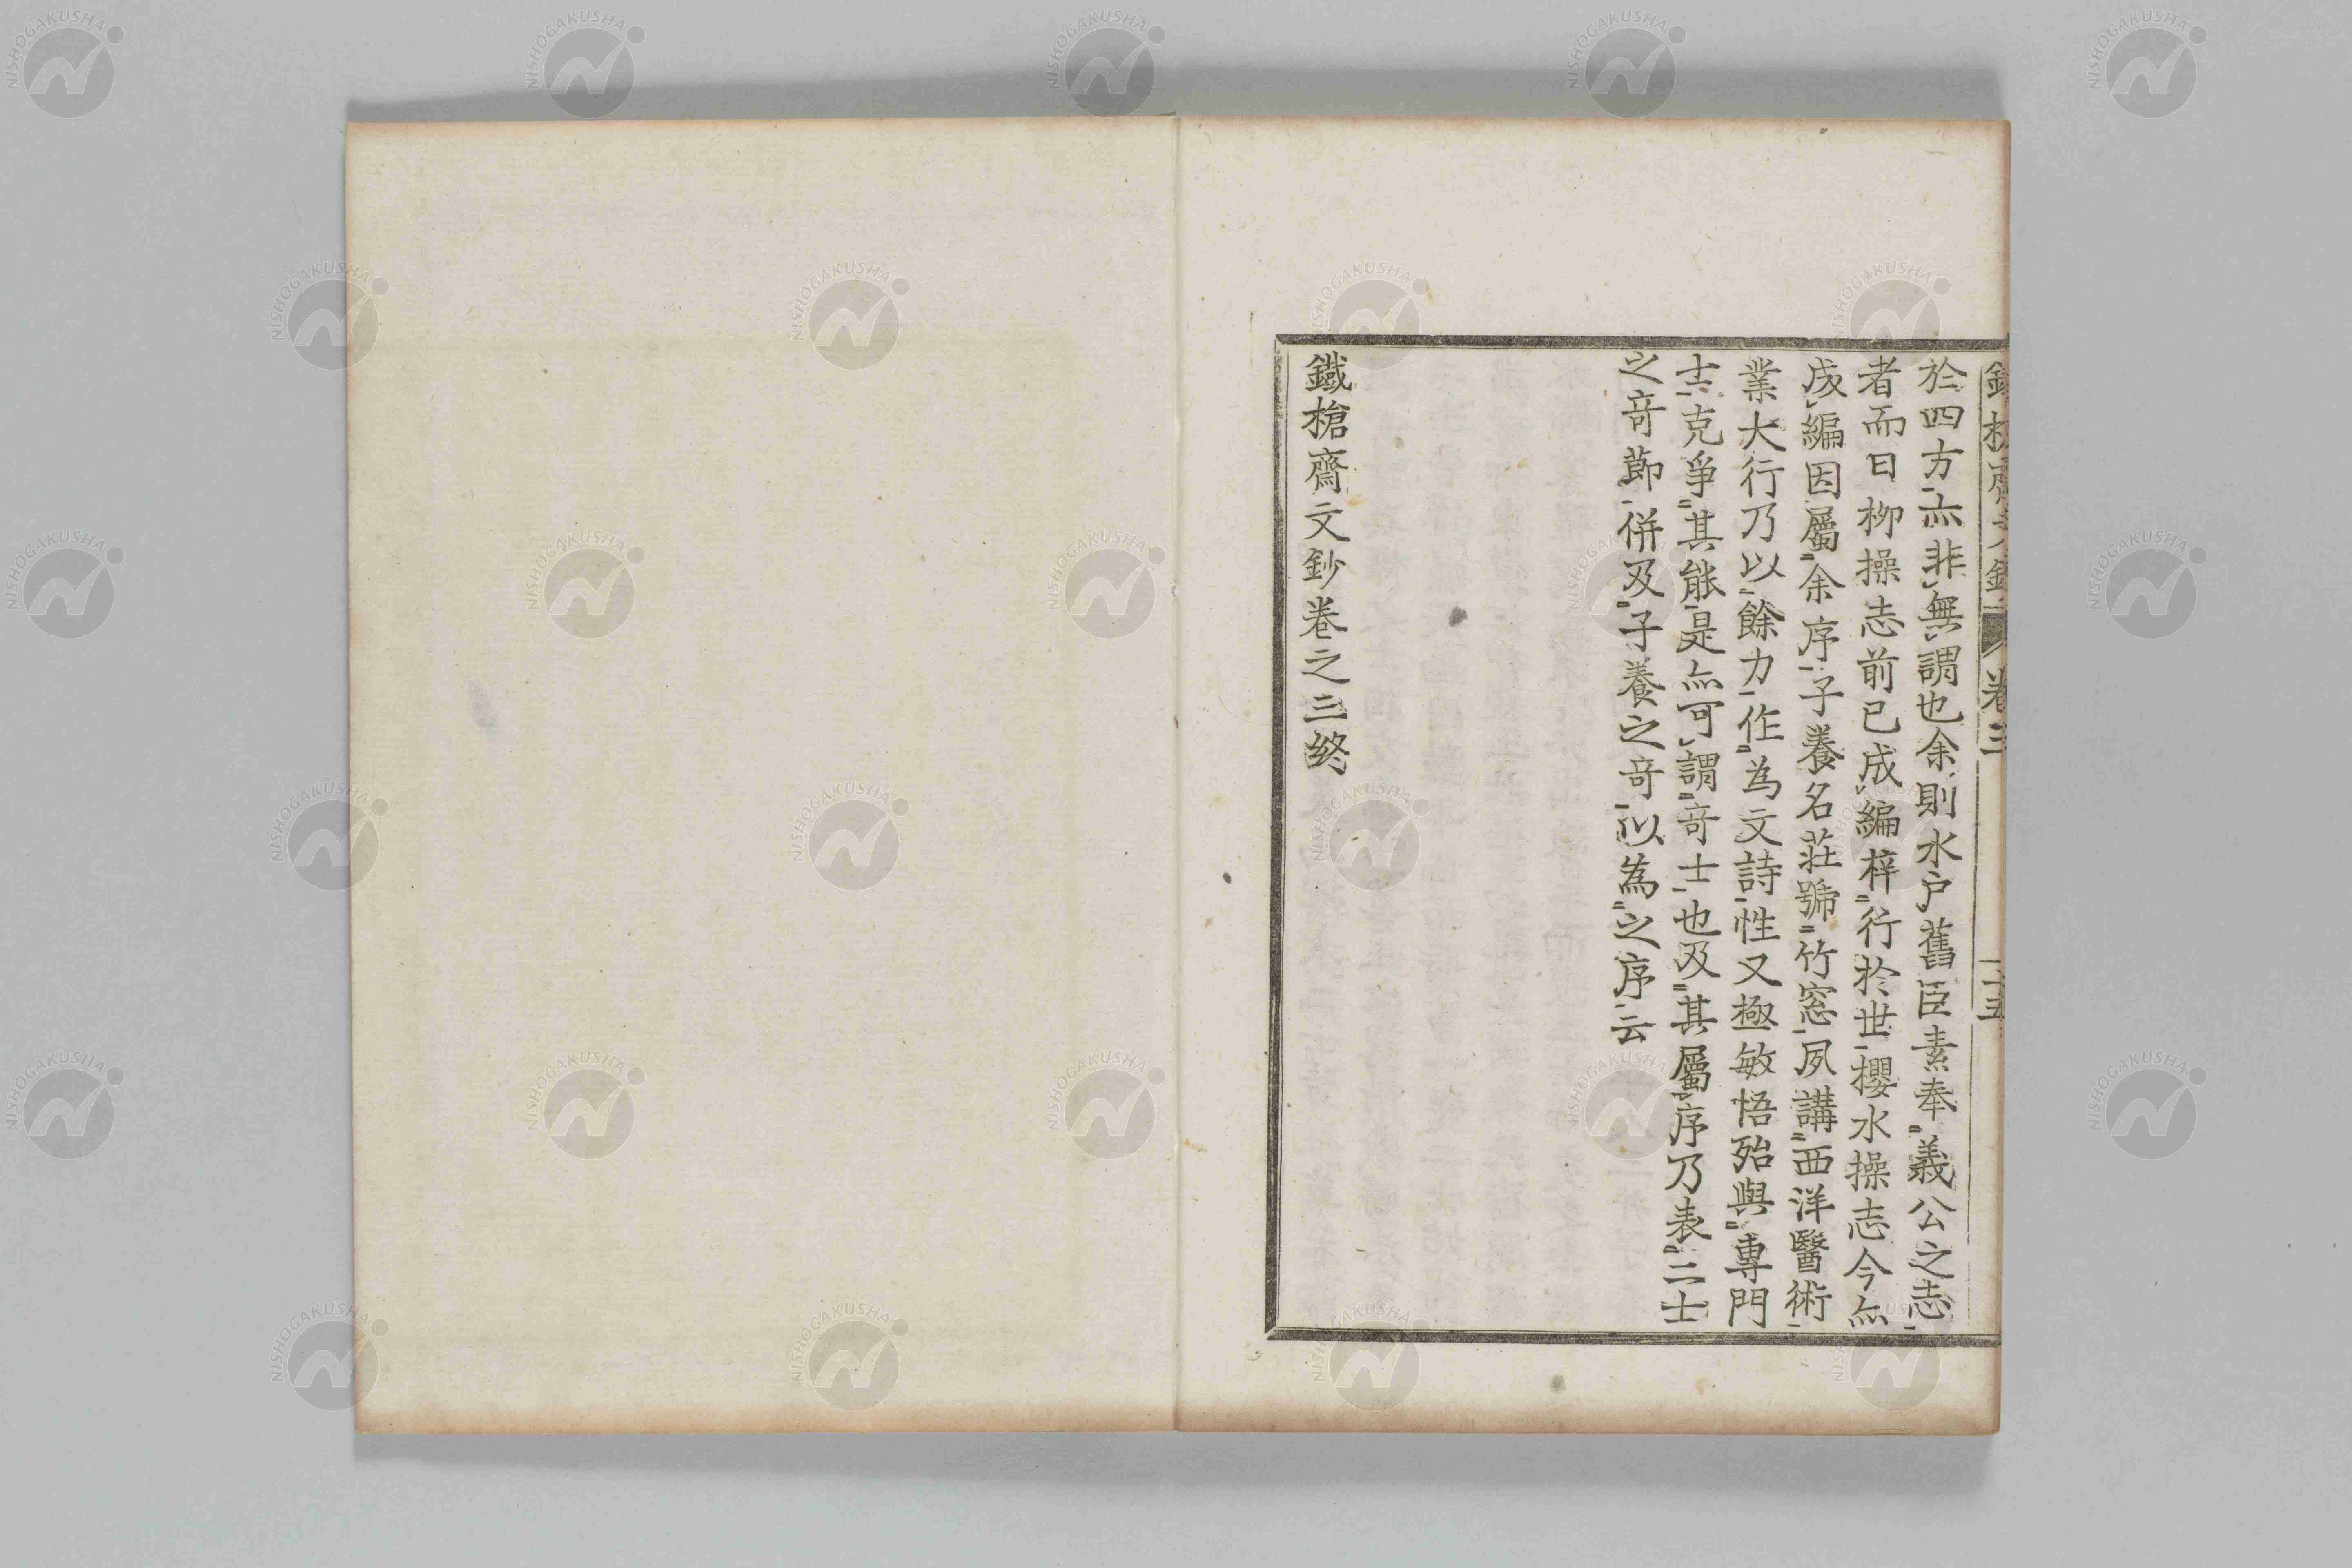 於四方亦非無謂也余則水戸舊臣素奉義公之志
者而曰柳操志前已成編梓行於世櫻水操志今亦
成編因屬余序子養名莊號竹窓夙講西洋醫術
業大行乃以餘力作為文詩性又極敏悟殆與專門
士克爭其能是亦可謂竒士也及其屬序乃表二士
之竒節併及子養之竒以為之序云
鐵槍齋文鈔卷之三終
卷三
二十五
NISHOGAKUSHA